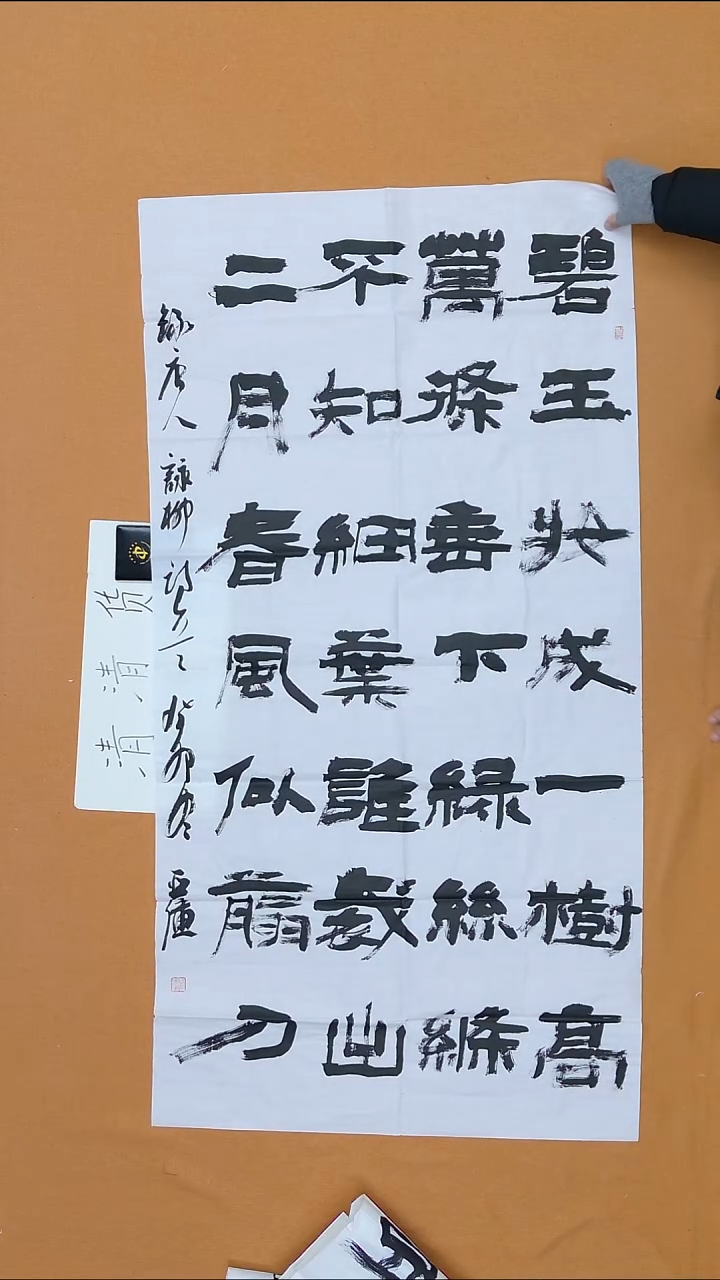 碧玉妝成一樹高
萬條垂下綠絲縧
不知細葉誰裁出
二月春風似翦刀
錄唐人詠柳詩 癸卯冬
清清货